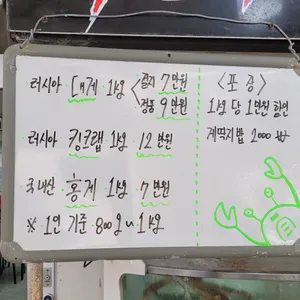 러시아 대게 1kg < 절지 7만원
정품 9만원
러시아 킹크랩 1kg 12만원
국내산 홍게 1kg 7만원
※ 1인 기준 800g ~ 1kg
<포장>
1kg 당 1만원 할인
게딱지밥 2000